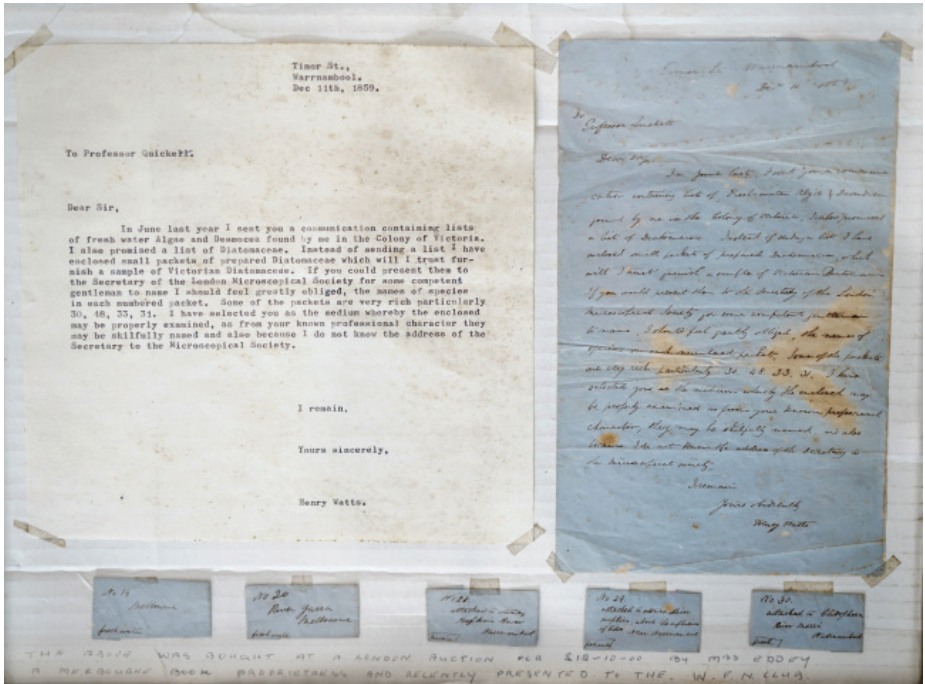 Timor St.,
Warrnambool.
Dec 11th, 1859.
To Professor Quickett.
Dear Sir,
In June last year I sent you a communication containing lists
of fresh water Algae and Desmocea found by me in the Colony of Victoria.
I also promised a list of Diatomaceae. Instead of sending a list I have
enclosed small packets of prepared Diatomaceae which will I trust fur-
nish a sample of Victorian Diatomaceae. If you could present them to
the Secretary of the London Microscopical Society for some competent
gentleman to name I should feel greatly obliged, the names of species
in each numbered packet. Some of the packets are very rich particularly
30, 48, 33, 31. I have selected you as the medium whereby the enclosed
may be properly examined, as from your known professional character they
may be skilfully named and also because I do not know the address of the
Secretary to the Microscopical Society.
I remain,
Yours sincerely,
Henry Watts.
Warrnambool
Professor
Dear Sir,
In June last, I sent you a communi-
cation containing list of Freshwater Algae &
found by me in the Colony of Victoria,
a list of Diatomaceae. Instead of a list I have
enclosed small packets of prepared Diatomaceae, which
will I trust furnish a sample of Victorian
If you could present them to the Secretary of the London
Microscopical Society for some competent gentleman
to name I should feel greatly obliged, the names of
species in each packet. Some of the packets
are very rich particularly 30. 48. 33. 31. I have
selected you as the medium whereby the enclosed may
be properly examined as from your known professional
character, they may be skilfully named, and also
because I do not know the address of the Secretary to
the Microscopical Society.
I remain
Yours
Henry Watts
No 19
Melbourne
fresh water
No 20
River Yarra
Melbourne
fresh water
attached to
Hopkins River
Warrnambool
No 29.
attached to
near Warrnambool
No 30.
attached to
River Merri
Warrnambool
THE ABOVE WAS BOUGHT AT A LONDON AUCTION FOR £12-10-00 BY MRS EDDEY
A MELBOURNE BOOK PROPRIETRESS AND RECENTLY PRESENTED TO THE W.F.N. CLUB.